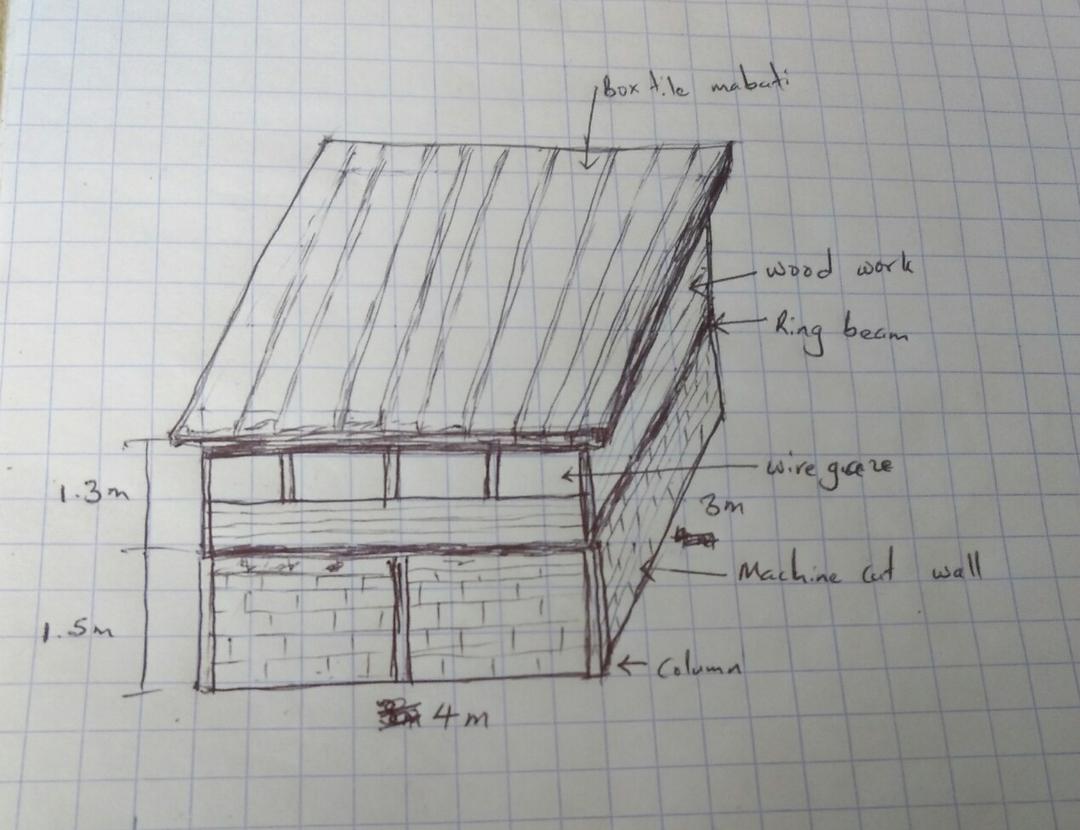 Box tile mabati
wood work
Ring beam
1.3m
wire gauze
3m
Machine cut wall
1.5m
Column
4m